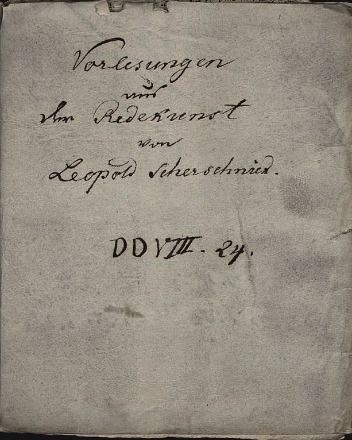 Vorlesungen
aus
der Redekunst
von
Leopold Scherschnick.
DD VIII. 24.